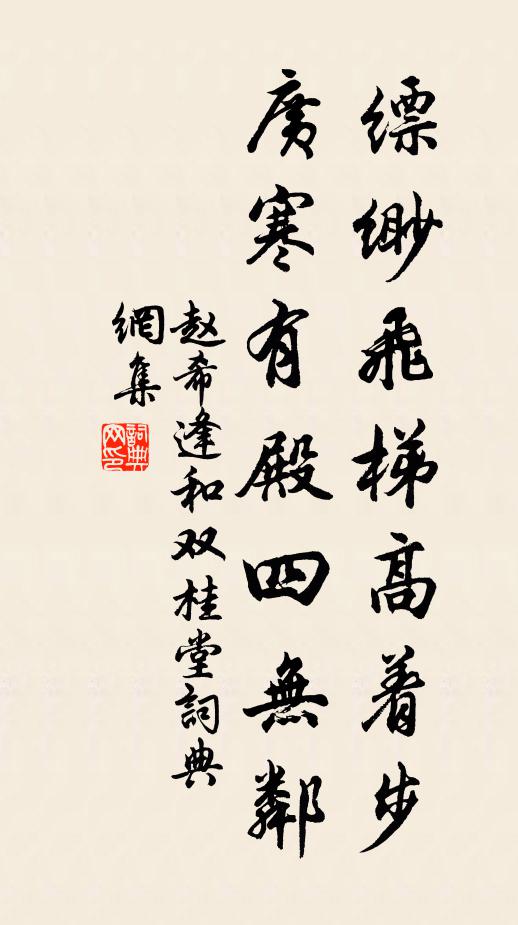 缥缈飛梯高着步
廣寒有殿四無鄰
赵希逢和双桂堂詞典
網集
詞典
网印